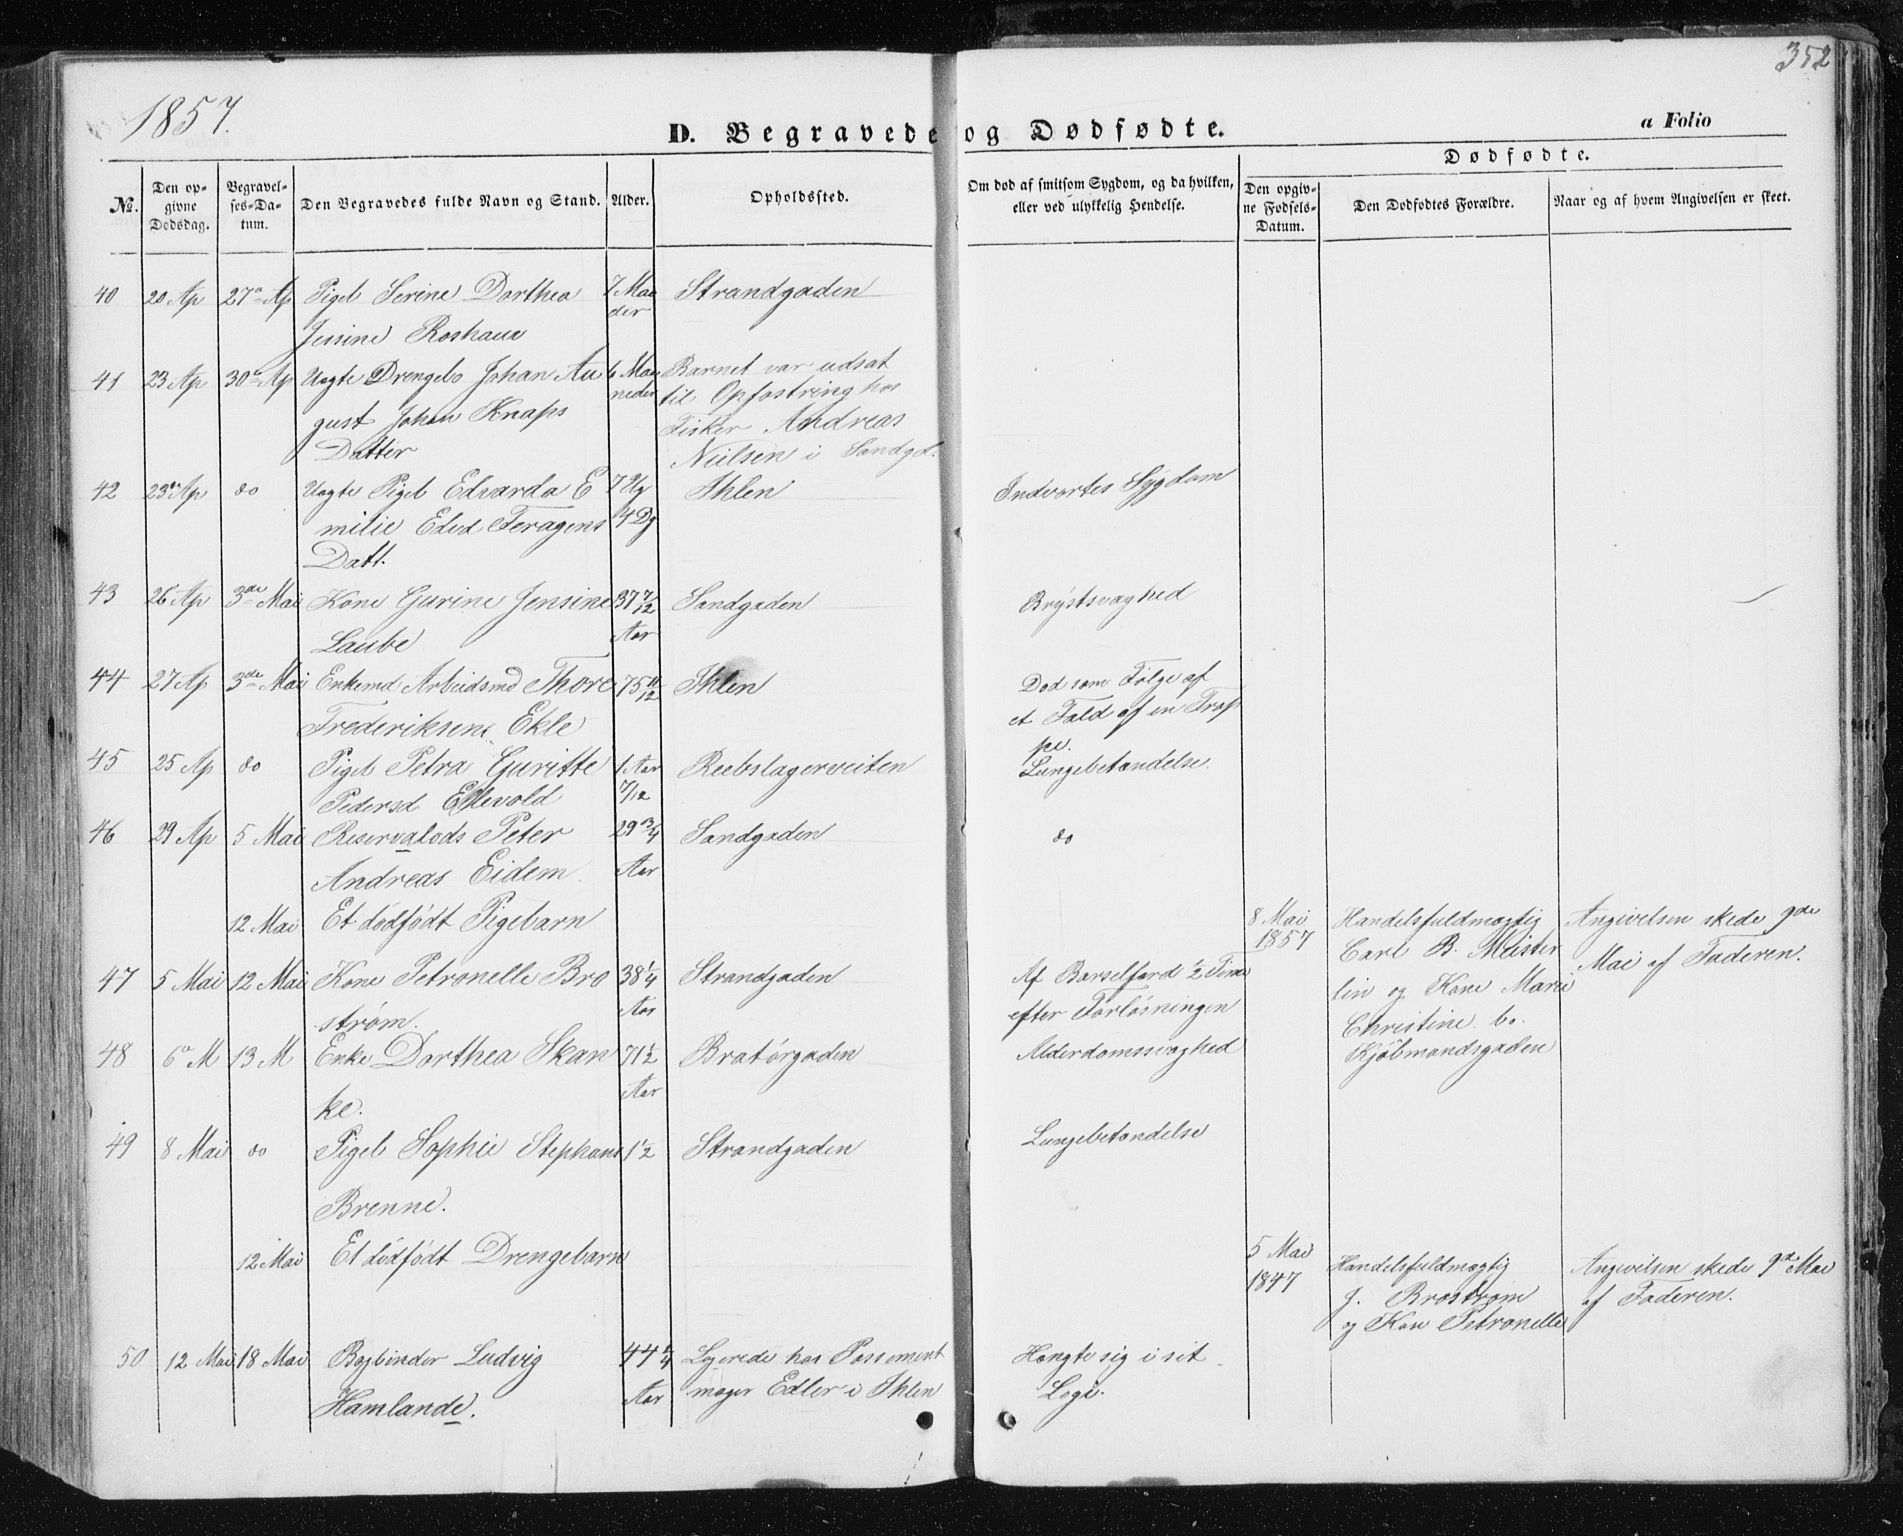 352
1857.
D. Begravede og Dødfødte.
a Folio
Dødfødte.
No.
Den op-
givne
Dødsdag.
Begravel-
ses-Da-
tum.
Den Begravedes fulde Navn og Stand.
Alder.
Opholdssted.
Om død af smitsom Sygdom, og da hvilken,
eller ved ulykkelig Hendelse.
Den opgiv-
ne Fødsels-
Datum.
Den Dødfødtes Forældre.
Naar og af hvem Angivelsen er skeet.
40 20 Ap 27 Ap Pigeb Serine Dorthea 7 Maa Strandgaden
Jensine Roshaue der
41 23 Ap 30 Ap Uægte Drengeb Johan Au 6 Maa Barnet var udsat
gust Johan Knaps neder til Opfostring hos
Datter Fisker Andreas
Nielsen i Sandgd.
42 23 Ap do Uægte Pigeb Edvarda E 7 Ug Ihlen Indvortes Sygdom
milie Edvd Feragens 4 Dg
Datt.
43 26 Ap 3de Mai Kone Gurine Jensine 37 7/12 Sandgaden Brÿstsvaghed
Laube Aar
44 27 Ap 3de Mai Enkemd Arbeidsmd Thore 75 11/12 Ihlen Død som Følge af
Frederiksen Ekle et Fald af en Trap
pe.
45 25 Ap do Pigeb Petra Guritte 1 Aar Reebslagerveiten Lungebetændelse.
Pedersd Ellevold 7/12
46 29 Ap 5 Mai Reservelods Peter 29 3/4 Sandgaden do
Andreas Eidem Aar
12 Mai Et dødfødt Pigebarn 8 Mai Handelsfuldmægtig Angivelsen skede 9de
1857 Carl B. Meister Mai af Faderen.
lin og Kone Marie
Christine bo.
Kjøbmandsgaden
47 5 Mai 12 Mai Kone Petronelle Bro 38 1/4 Strandgaden Af Barselfærd 1/2 Time
strøm. Aar efter Forløsningen
48 6 M 13 M Enke Dorthea Skan 71 1/2 Bratørgaden Alderdomssvaghed
ke. Aar
49 8 Mai do Pigeb Sophie Stephans 1 1/2 Strandgaden Lungebetændelse
Brenne.
12 Mai Et dødfødt Drengebarn 5 Mai Handelsfuldmægtig Angivelsen skede 9de Mai
1847 J. Brostrøm af Faderen.
og Kone Petronelle
50 12 Mai 18 Mai Bogbinder Ludvig 44 1/4 Logerede hos Possement Hængte sig i sit
Hamlande. Aar mager Edler i Ihlen Logi.